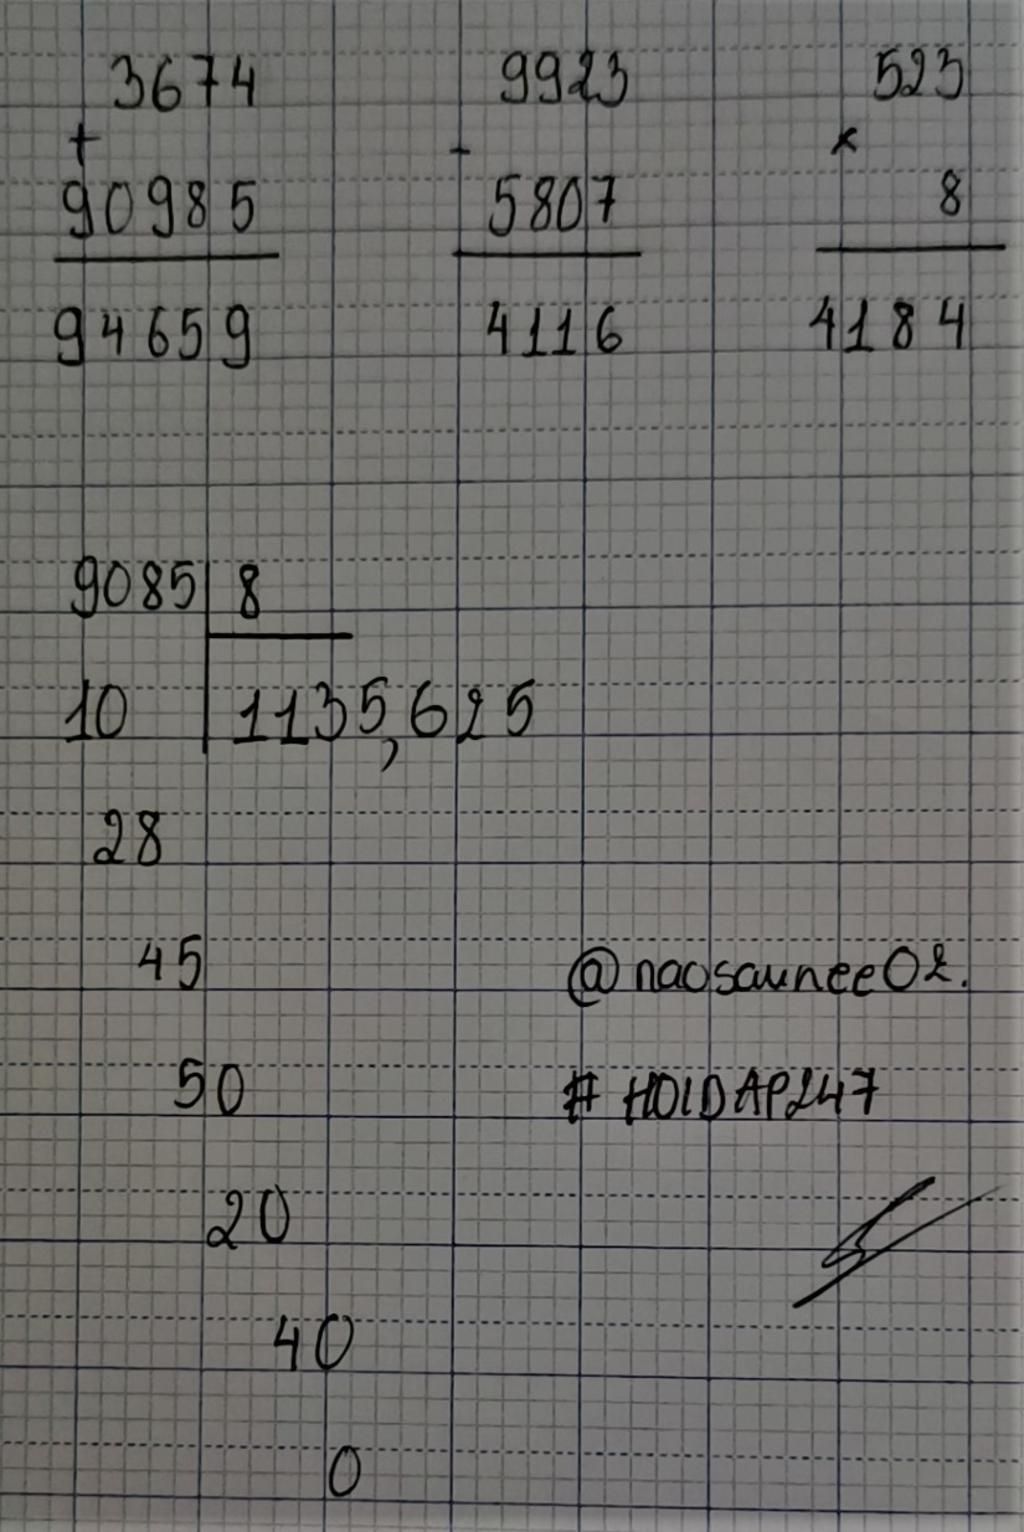 3674
+
90985
94659
9923
-
5807
4116
523
x
8
4184
9085 8
10 1135,625
28
45
50
20
40
0
@naosaunee02.
# HOIDAP247